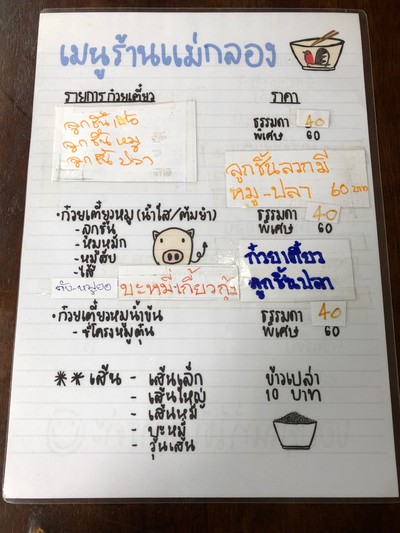 เมนูร้านแม่กลอง
รายการก๋วยเตี๋ยว
ราคา
ลูกชิ้นเนื้อ
ลูกชิ้นหมู
ลูกชิ้นปลา
ธรรมดา 40
พิเศษ 60
ลูกชิ้นลวกมี
หมู-ปลา 60 บาท
•ก๋วยเตี๋ยวหมู (น้ำใส/ต้มยำ)
-ลูกชิ้น
-หมูหมัก
-หมูสับ
-ไส้
ตับ-หมูยอ
ธรรมดา 40
พิเศษ 60
ก๋วยเตี๋ยว
ลูกชิ้นปลา
บะหมี่เกี๊ยวกุ้ง
•ก๋วยเตี๋ยวหมูน้ำข้น
-ซี่โครงหมูตุ๋น
ธรรมดา 40
พิเศษ 60
**เส้น - เส้นเล็ก
- เส้นใหญ่
- เส้นหมี่
- บะหมี่
- วุ้นเส้น
ข้าวเปล่า
10 บาท